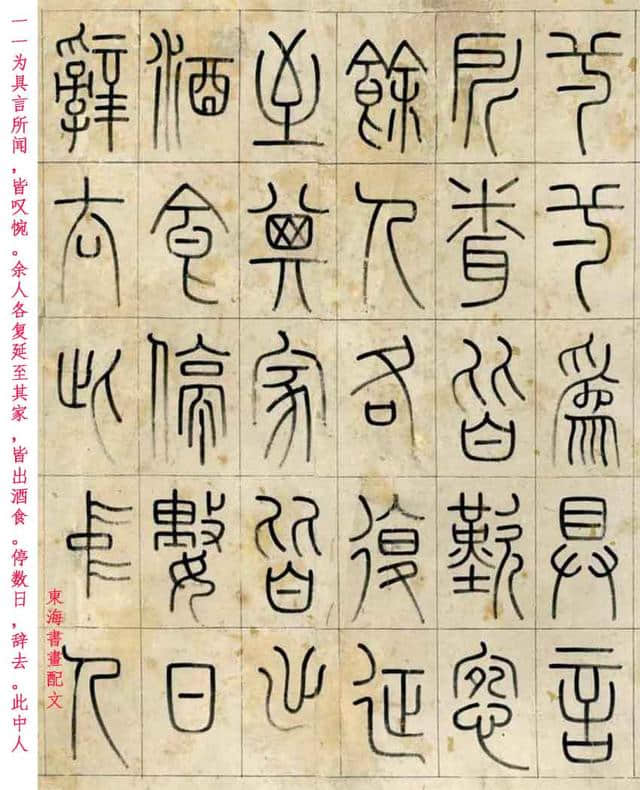 一一爲具言
所聞皆歎惋
餘人各復延
至其家皆出
酒食停數日
辭去此中人
東海書畫配文
一一为具言所闻，皆叹惋。余人各复延至其家，皆出酒食。停数日，辞去。此中人